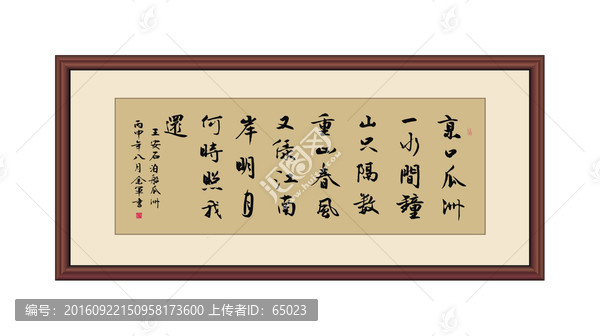 京口瓜洲
一水間鐘
山只隔數
重山春風
又綠江南
岸明月
何時照我
還
王安石泊船瓜洲
丙申年八月軍書
编号：20160922150958173600 上传者ID：65023